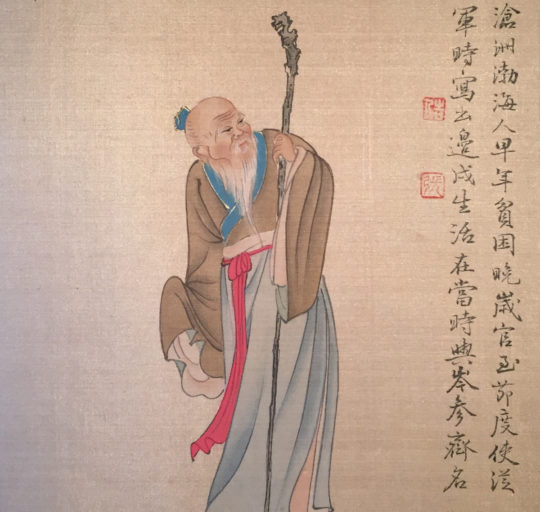 滄洲渤海人早年貧困晚歲官至莭度使從
軍時寫出邊戍生活在當時與岑參齊名